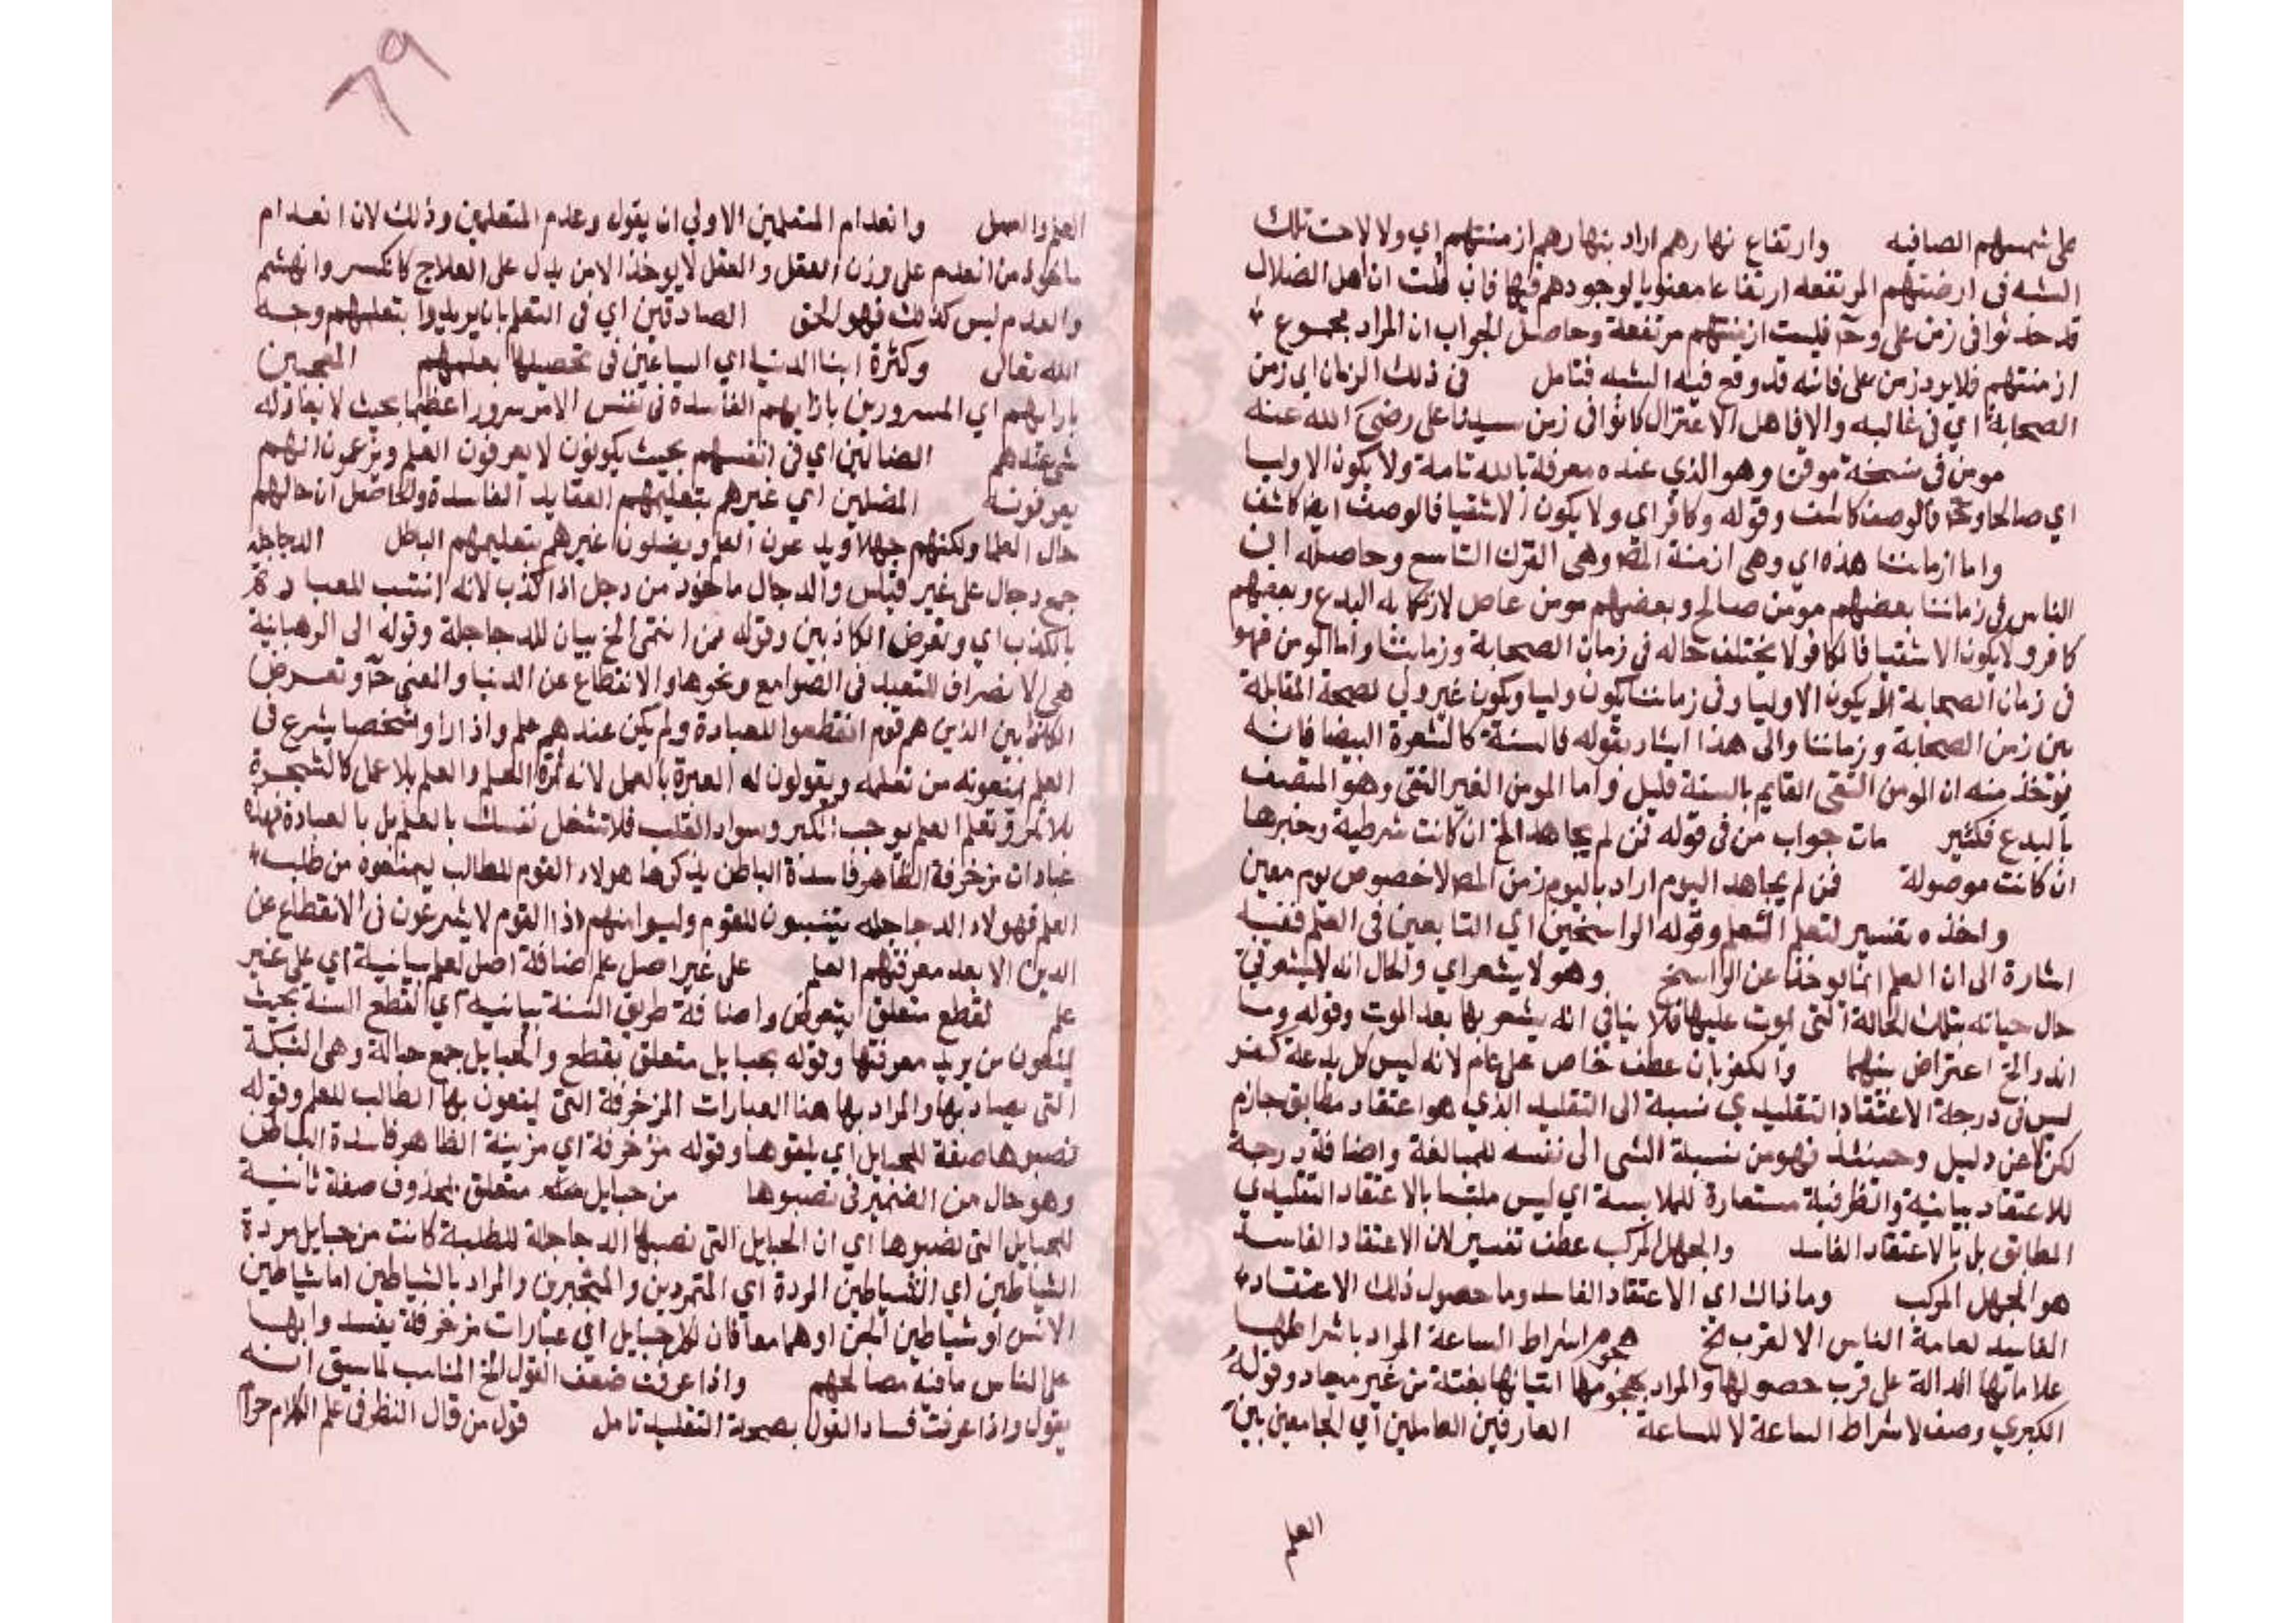 على شمسهم الصافيه وارتفاع نهارهم اراد بنهارهم ازمنتهم اي ولا لاحت تلك
الشبه في ازمنتهم المرتفعه ارتفاعا معنويا لوجودهم فيها فان قلت ان اهل الضلال
قد حدثوا في زمن علي وح فليست ازمنتهم مرتفعة وحاصل الجواب ان المراد بمجموع
ازمنتهم فلا يرد زمن علي فانه قد وقع فيه الشبه فتامل في ذلك الزمان اي زمن
الصحابة اي في غالبه والا فاهل الاعتزال كانوا في زمن سيدنا علي رضي الله عنه
مومن في نسخة موقن وهو الذي عنده معرفة بالله تامة ولا يكون الا وليا
اي صالحا وح فالوصف كاشف وقوله وكافر اي ولا يكون الا شقيا فالوصف ايضا كاشف
واما ازماننا هذه اي وهي ازمنة المص وهي القرن التاسع وحاصله ان
الناس في زماننا بعضهم مومن صالح وبعضهم مومن عاص لارتكابه البدع وبعضهم
كافر ولا يكون الا شقيا فالكافر لا يختلف حاله في زمان الصحابة وزماننا واما المومن فهو
في زمان الصحابة لا يكون الا وليا وفي زماننا يكون وليا ويكون غير ولي لصحة المقابلة
بين زمن الصحابة وزماننا والى هذا اشار بقوله فالسنة كالشعرة البيضا فانه
يوخذ منه ان المومن التقي القايم بالسنة قليل واما المومن الغير التقي وهو المتصف
بالبدع فكثير مات جواب من في قوله فمن لم يجاهد الخ ان كانت شرطية وخبرها
ان كانت موصولة فمن لم يجاهد اليوم اراد باليوم زمن المص لا خصوص يوم معين
واخذه تفسير لتعلم العلم وقوله الراسخين اي التابعين في العلم ففيه
اشارة الى ان العلم انما يوخذ عن الراسخ وهو لا يشعر اي والحال انه لا يشعر في
حال حياته بتلك الحالة التي يموت عليها فلا ينافي انه يشعر بها بعد الموت وقوله وما
اندر الخ اعتراض بينهما والكفر بان عطف خاص على عام لانه ليس كل بدعة كفر
ليس في درجة الاعتقاد التقليدي نسبة الى التقليد الذي هو اعتقاد مطابق جازم
لكن لا عن دليل وحينئذ فهو من نسبة الشي الى نفسه للمبالغة واضافة درجة
للاعتقاد بيانية والظرفية مستعارة للملابسة اي ليس ملتبسا بالاعتقاد التقليدي
المطابق بل بالاعتقاد الفاسد والجهل المركب عطف تفسير لان الاعتقاد الفاسد
هو الجهل المركب وما ذاك اي الاعتقاد الفاسد وما حصول ذلك الاعتقاد
الفاسد لعامة الناس الا لقرب الخ هجوم اشراط الساعة المراد باشراطها
علاماتها الدالة على قرب حصولها والمراد بهجومها اتيانها بغتة من غير ميعاد وقوله
الكبري وصف لاشراط الساعة لا للساعة العارفين العاملين اي الجامعين بين
العلم
٦٩
العلم والعمل وانعدام المتعلمين الاولي ان يقول وعدم المتعلمين وذلك لان انعدام
ماخوذ من انعدم على وزن انفعل وانفعل لا يوخذ الا من يدل على العلاج كانكسر وانهشم
والعدم ليس كذلك فهو لحن الصادقين اي في التعلم بان يريدوا بتعلمهم وجه
الله تعالى وكثرة ابنا الدنيا اي الساعين في تحصيلها بعلمهم المعجبين
بارائهم اي المسرورين بارايهم الفاسدة في نفس الامر سرورا عظيما بحيث لا يعادله
شي عندهم الضالين اي في انفسهم بحيث يكونون لا يعرفون العلم ويزعمون انهم
يعرفونه المضلين اي غيرهم بتعليمهم العقايد الفاسدة والحاصل ان حالهم
حال العلما ولكنهم جهلا ويدعون العلم ويضلون غيرهم بتعليمهم الباطل الدجاجلة
جمع دجال على غير قياس والدجال ماخوذ من دجل اذا كذب لانه انتسب للعبادة
بالكذب اي وتعرض الكاذبين وقوله ممن انتمى الخ بيان للدجاجلة وقوله الى الرهبانية
هي الانصراف للتعبد في الصوامع ونحوها والانقطاع عن الدنيا والمعنى ح وتعرض
الكاذبين الذين هم قوم انقطعوا للعبادة ولم يكن عندهم علم واذا راوا شخصا يشرع في
العلم يمنعونه من تعلمه ويقولون له العبرة بالعمل لانه ثمرة العلم والعلم بلا عمل كالشجرة
بلا ثمر وتعلم العلم يوجب الكبر وسواد القلب فلا تشغل نفسك بالعلم بل بالعبادة فهذه
عبارات مزخرفة الظاهر فاسدة الباطن يذكرها هولاء القوم للطالب ليمنعوه من طلب
العلم فهولاء الدجاجلة ينتسبون للقوم وليسوا منهم اذ القوم لا يشرعون في الانقطاع عن
الدين الا بعد معرفتهم العلم على غير اصل علم اضافة اصل لعلم بيانية اي على غير
علم لقطع متعلق بتعرض واضافة طريق السنة بيانية اي لقطع السنة بحيث
يمنعون من يريد معرفتها وقوله بحبايل متعلق بقطع والحبايل جمع حبالة وهي الشبكة
التي يصاد بها والمراد بها هنا العبارات المزخرفة التي يمنعون بها الطالب للعلم وقوله
نصبوها صفة للحبايل اي يلقوها وقوله مزخرفة اي مزينة الظاهر فاسدة الباطن
وهو حال من الضمير في نصبوها من حبايل متعلق بمحذوف صفة ثانية
للحبايل التي نصبوها اي ان الحبايل التي نصبها الدجاجلة للطلبة كانت من حبايل مردة
الشياطين اي الشياطين المردة اي المتمردين والمتجبرين والمراد بالشياطين اما شياطين
الانس او شياطين الجن او هما معا فان للكل حبايل اي عبارات مزخرفة يفسدوا بها
على الناس ما فيه مصالحهم واذا عرفت ضعف القول الخ المناسب لما سبق انه
يقول واذا عرفت فساد القول بصحة التقليد تامل قول من قال النظر في علم الكلام حرام